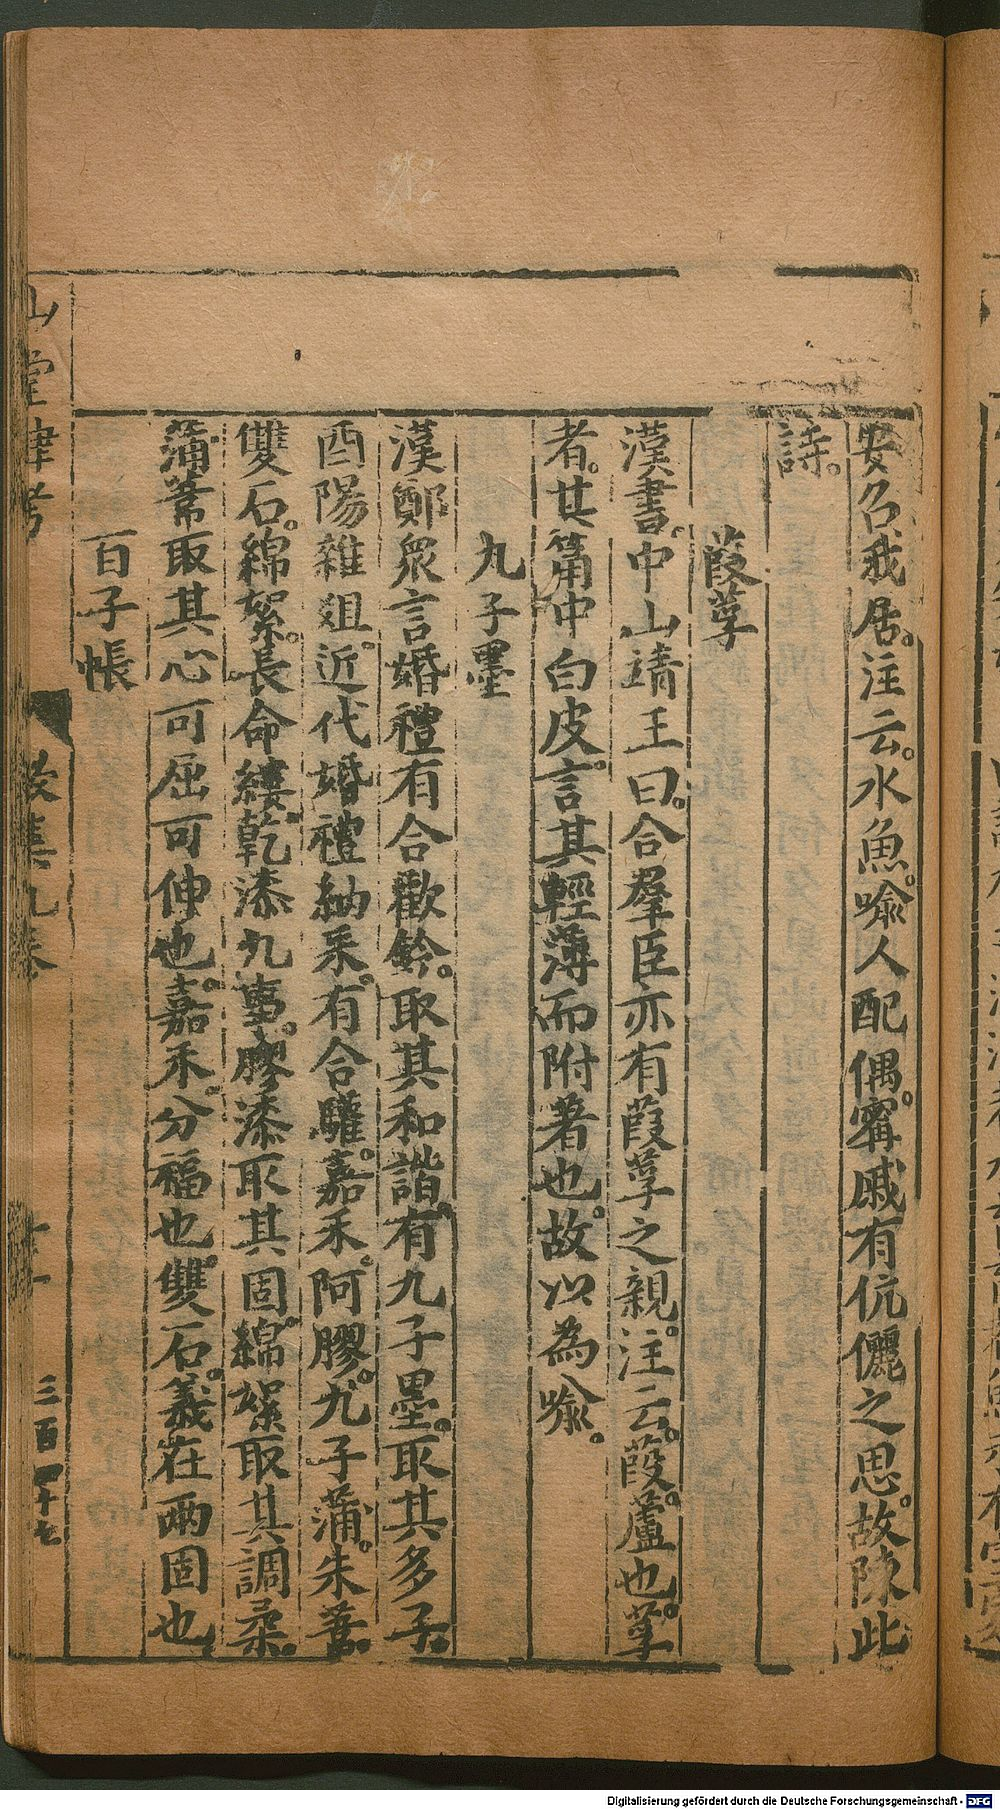 安召我居。注云。水魚。喩人配偶。甯戚有伉儷之思。故陳此
詩。
葭莩
漢書。中山靖王曰。合羣臣亦有葭莩之親。注云。葭。蘆也。莩
者。其筩中白皮。言其輕薄而附著也。故以為喩。
九子墨
漢鄭衆言婚禮有合歡鈴。取其和諧。有九子墨。取其多子。
酉陽雜俎。近代婚禮納采。有合驩。嘉禾。阿膠。九子蒲。朱葦。
雙石。綿絮。長命縷。乾漆九事。膠漆取其固。綿絮取其調柔。
蒲葦取其心可屈可伸也。嘉禾。分福也。雙石。義在兩固也
百子帳
山堂肆考
徵集九卷
十一
三百四十七
Digitalisierung gefördert durch die Deutsche Forschungsgemeinschaft - DFG